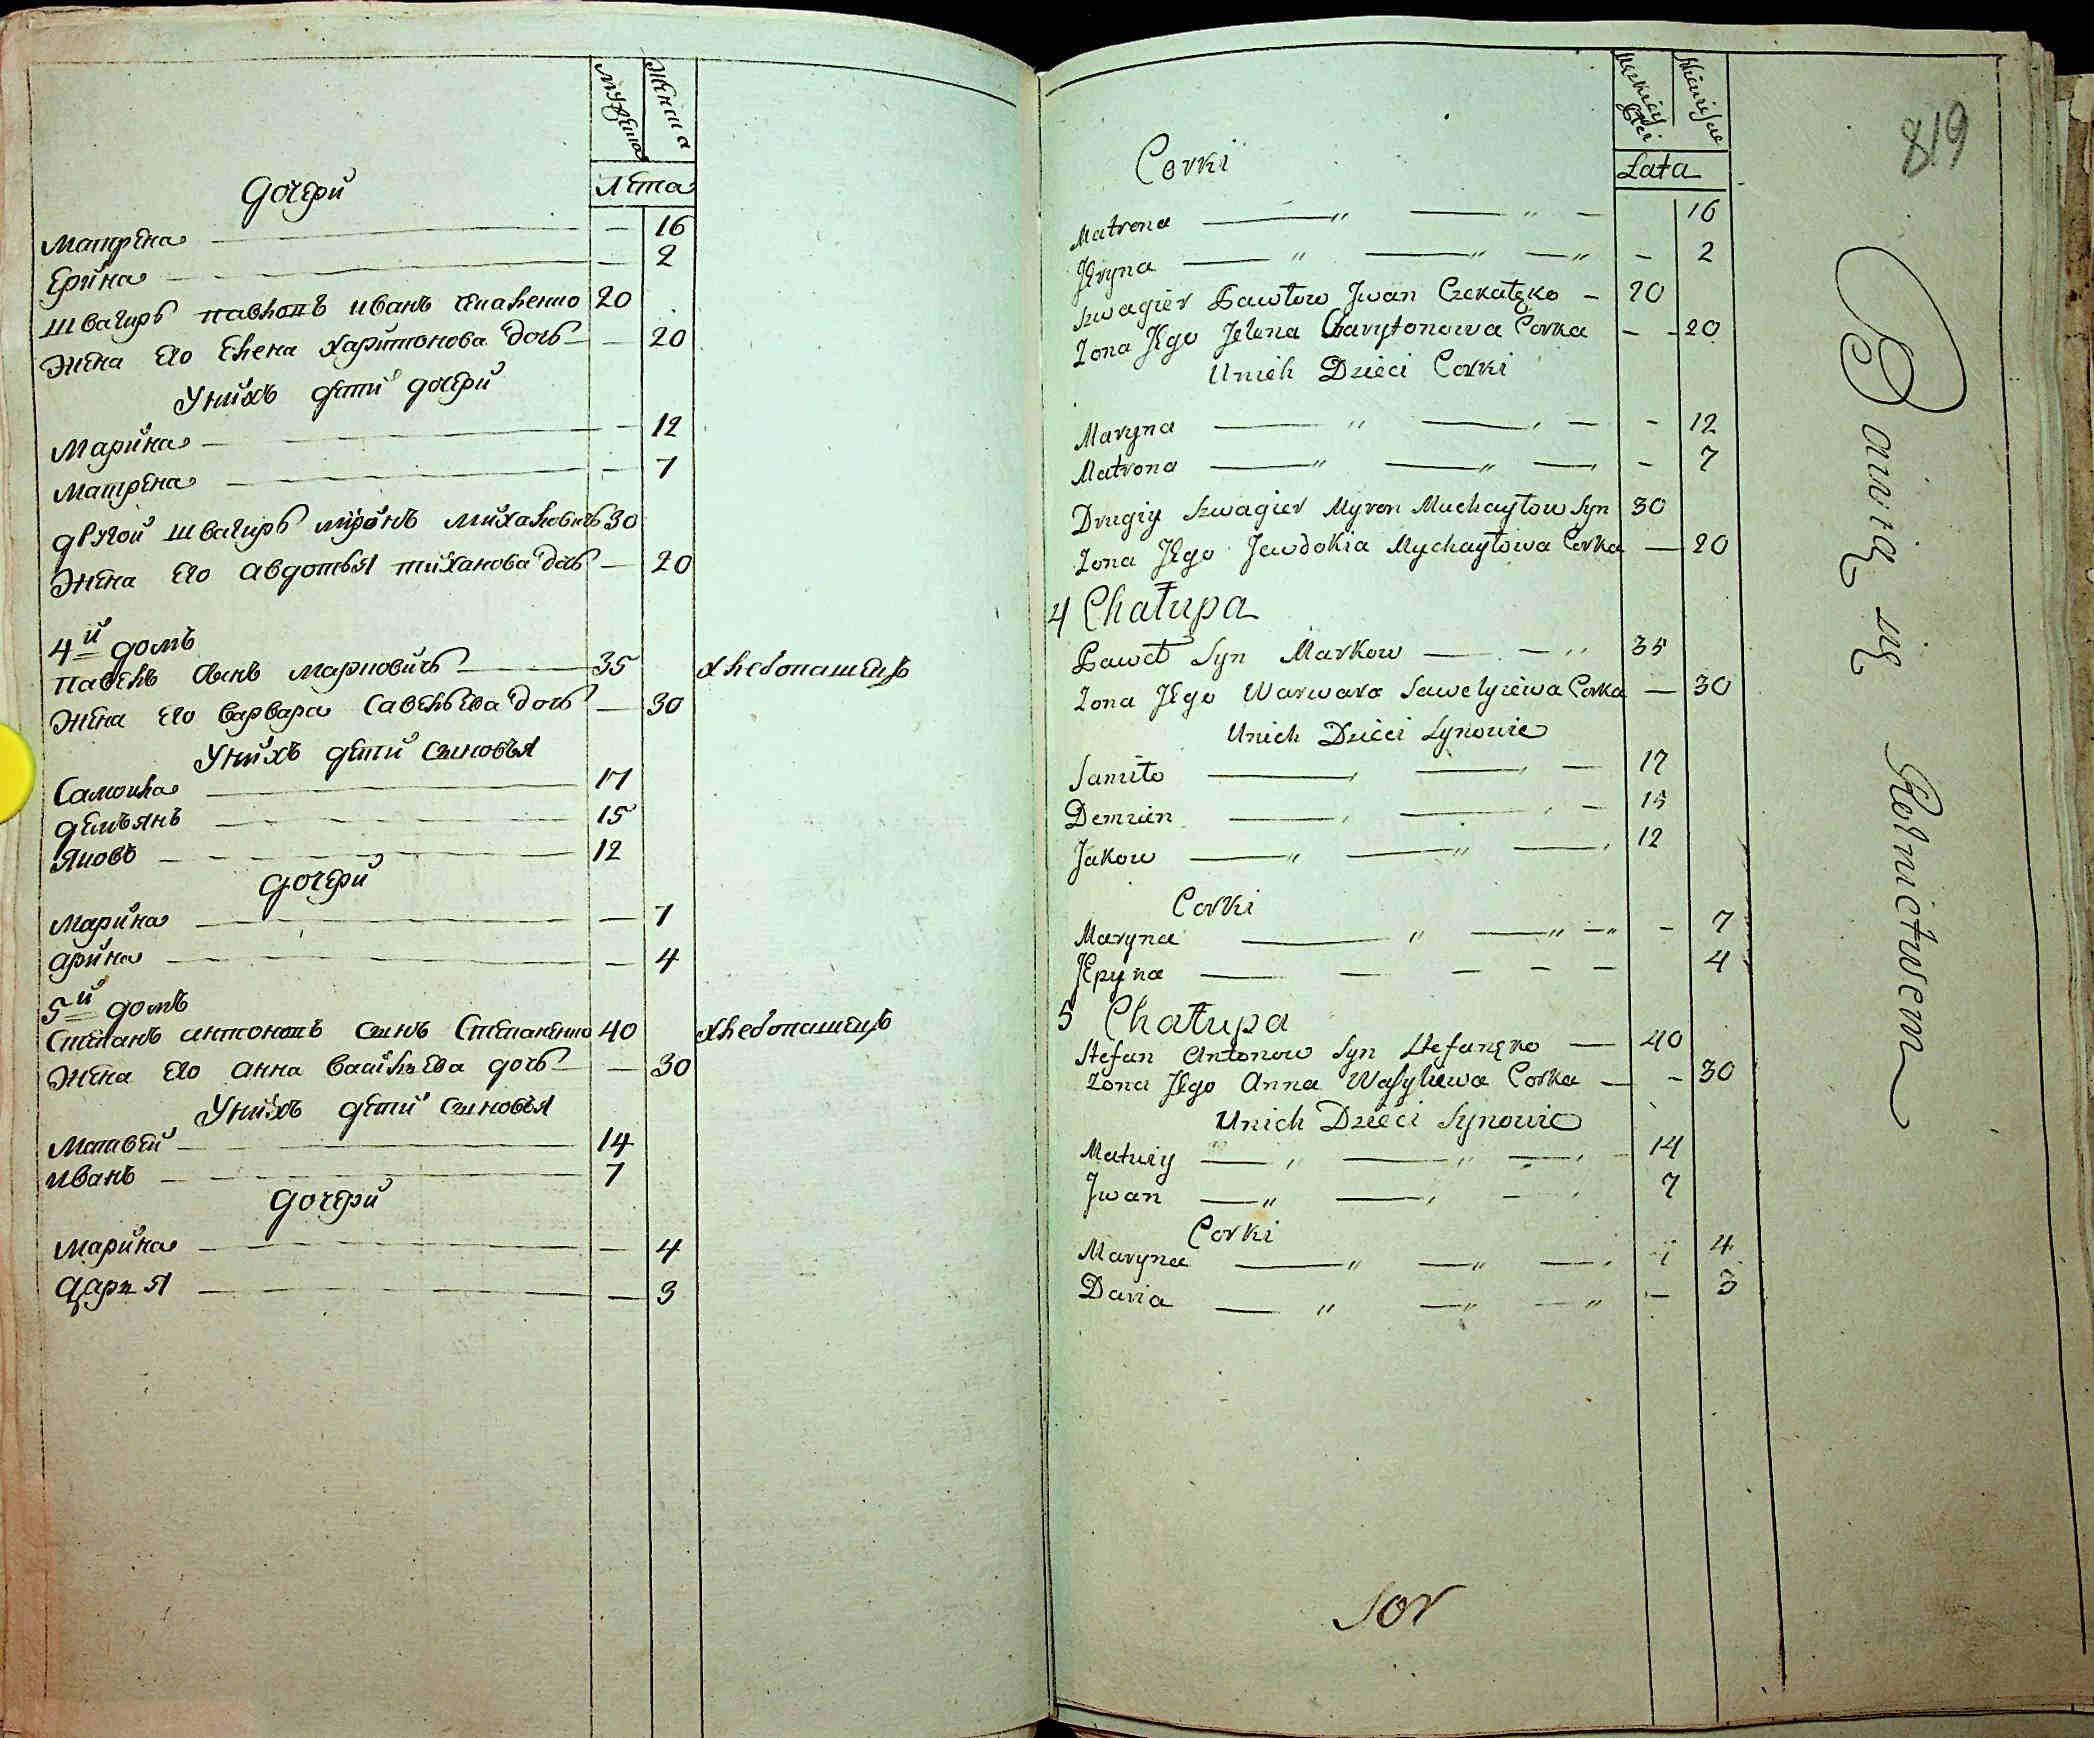 мужеска женска
Лета
Дочери
Матрена — 16
Ерина — 2
Швагиръ павловъ иванъ 20
Жена его Елена харитонова дочь — 20
У нихъ дети дочери
Марина — 12
Матрена — 7
другой швагиръ миронъ михаловичъ 30
Жена его авдотья тиханова дочь — 20
4й домъ
павелъ сынъ марковичъ 35 хлебопашецъ
Жена его варвара савельева дочь — 30
У нихъ дети сыновья
Самоила 17
демьянъ 15
яковъ 12
дочери
Марина — 7
арина — 4
5й домъ
Степанъ антоновъ сынъ Степаненко 40 хлебопашецъ
Жена его анна васильева дочь — 30
У нихъ дети сыновья
Матвей 14
иванъ 7
дочери
Марина — 4
Дария — 3
819
Lata
Corki
Matrona 16
Jeryna — 2
Szwagier Pawłow Jwan Czekałęko — 20
Zona Jego Jelena Charytonowa Corka — 20
Unich Dzieci Corki
Maryna — 12
Matrona — 7
Drugiy Szwagier Myron Muchayłow Syn 30
Zona Jego Jewdokia Mychayłowa Corka — 20
4 Chałupa
Paweł Syn Markow 35
Zona Jego Warwara Sawelyiewa Corka — 30
Unich Dzieci Synowie
Samiło 17
Demian 15
Jakow 12
Corki
Maryna — 7
Jepyna 4
5 Chałupa
Stefan Antonow Syn Stefanęko 40
Zona Jego Anna Wasyliewa Corka — 30
Unich Dzieci Synowie
Matwiy 14
Jwan 7
Corki
Maryna 4
Daria — 3
Bawią się Rolnictwem
Sor